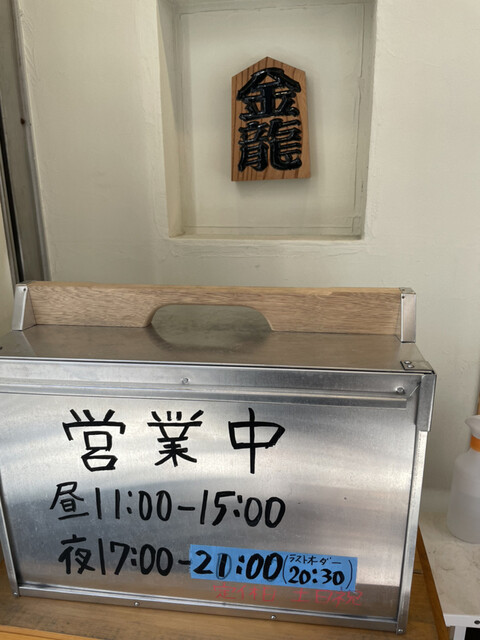 金龍
営業中
昼11:00-15:00
夜17:00-21:00(ラストオーダー 20:30)
定休日 土日祝